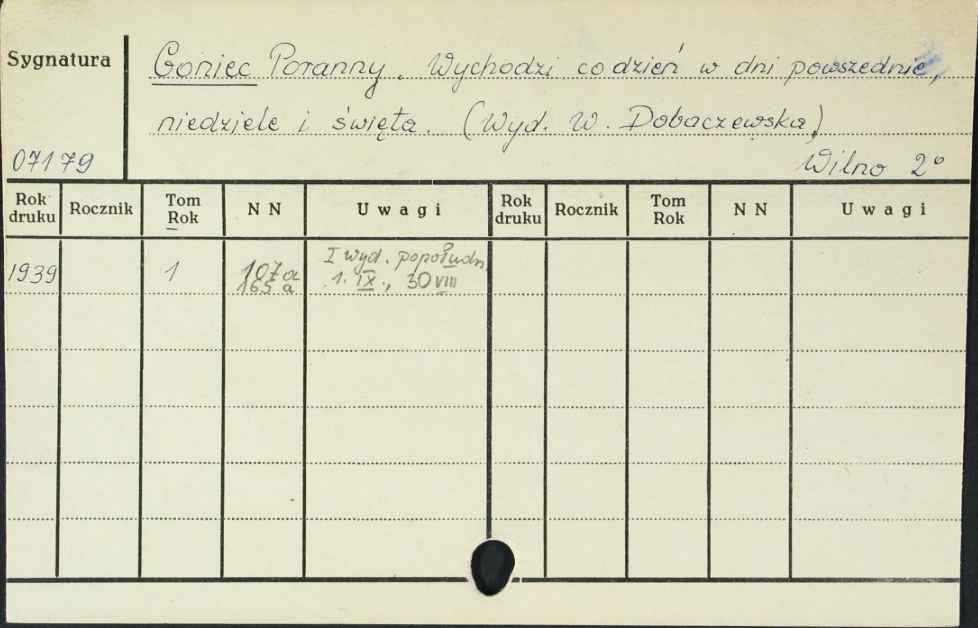 Sygnatura
Goniec Poranny. Wychodzi codzień w dni powszednie,
niedziele i święta. (Wyd. W. Dobaczewska)
07179
Wilno 2°
Rok druku Rocznik Tom Rok N N Uwagi Rok druku Rocznik Tom Rok N N Uwagi
1939 1 107a I wyd. popołudn.
165a 1. IX., 30 VIII